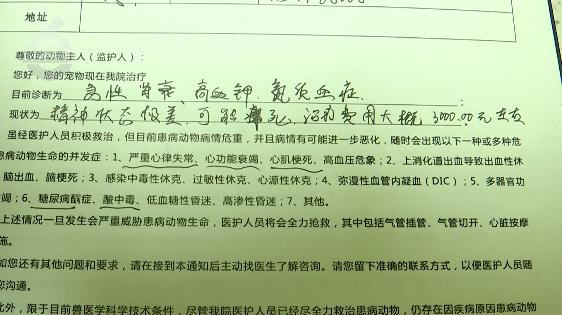 地址
尊敬的动物主人（监护人）：
您好，您的宠物现在我院治疗
目前诊断为 急性肾衰、高血钾、氮质血症 ；
现状为 精神状态极差，可能猝死，治疗费用大概3000.00元左右
虽经医护人员积极救治，但目前患病动物病情危重，并且病情有可能进一步恶化，随时会出现以下一种或多种危
患病动物生命的并发症：1、严重心律失常、心功能衰竭、心肌梗死、高血压危象；2、上消化道出血导致出血性休
脑出血、脑梗死；3、感染中毒性休克、过敏性休克、心源性休克；4、弥漫性血管内凝血（DIC）；5、多器官功
竭；6、糖尿病酮症、酸中毒、低血糖性昏迷、高渗性昏迷；7、其他。
上述情况一旦发生会严重威胁患病动物生命，医护人员将会全力抢救，其中包括气管插管、气管切开、心脏按摩
施。
如您还有其他问题和要求，请在接到本通知后主动找医生了解咨询。请您留下准确的联系方式，以便医护人员随
您沟通。
此外，限于目前兽医学科学技术条件，尽管我院医护人员已经尽全力救治患病动物，仍存在因疾病原因患病动物